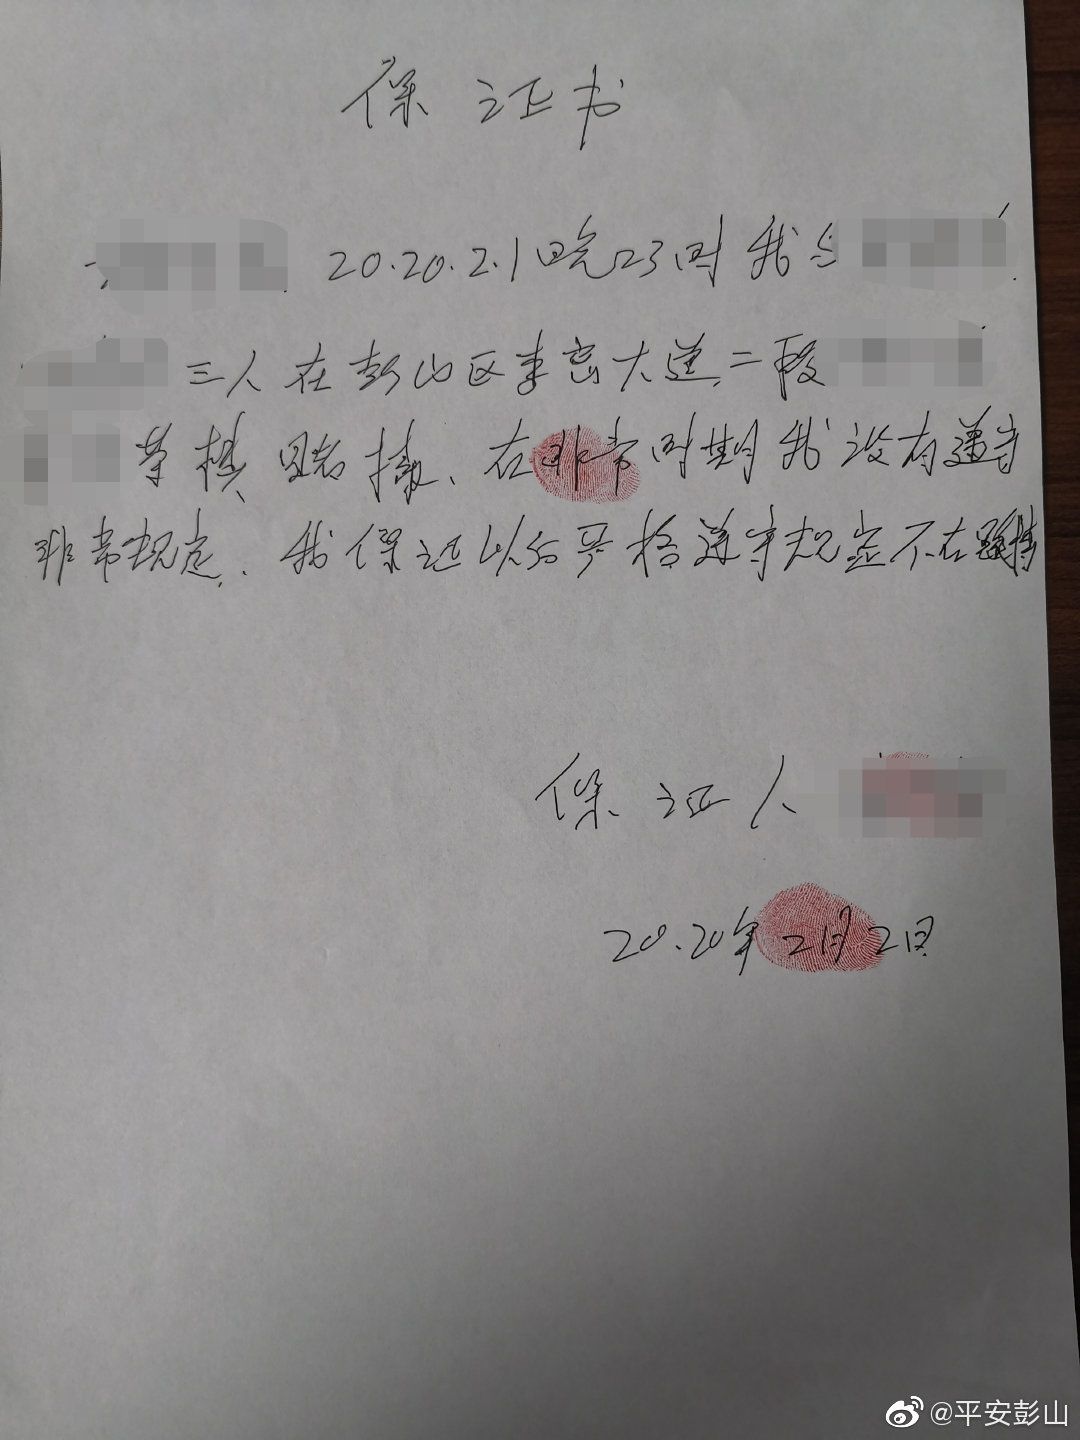 保证书
20.20.2.1晚23时我与
三人在彭山区大道二段
在非常时期我没有遵守
非常规定、我保证以后严格遵守规定不在
保证人
20.20年2月2日
@平安彭山